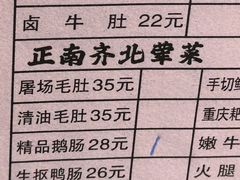 卤牛肚 22元
正南齐北荤菜
屠场毛肚 35元 手切
清油毛肚 35元 重庆耙
精品鹅肠 28元 / 嫩牛
生抠鸭肠 26元 火腿